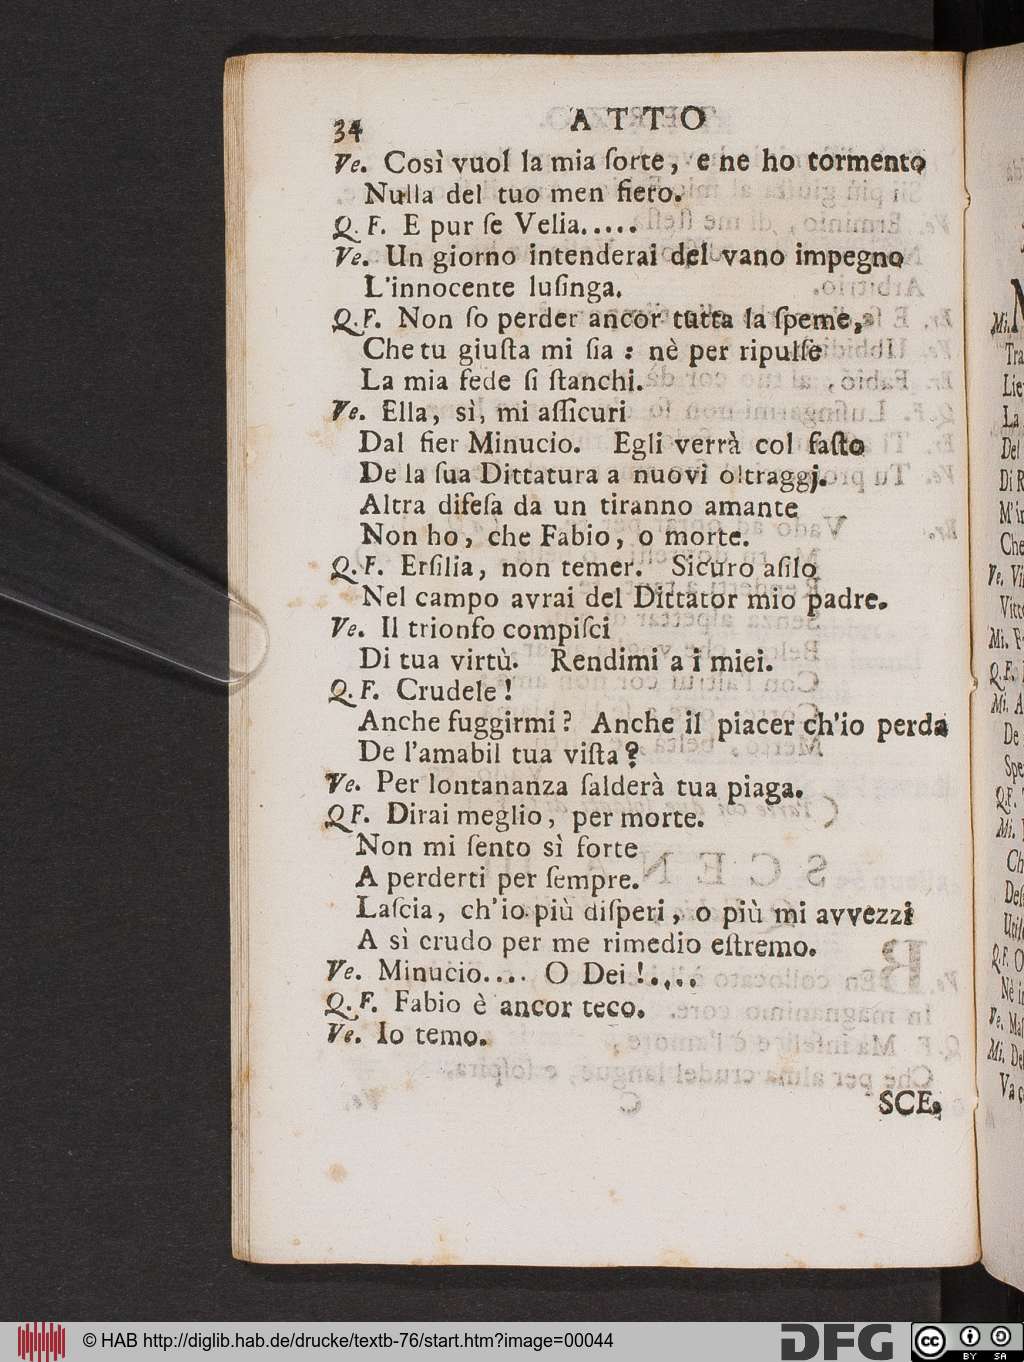 34 ATTO
Ve. Così vuol la mia ſorte, e ne ho tormento
Nulla del tuo men fiero.
Q. F. E pur ſe Velia.....
Ve. Un giorno intenderai del vano impegno
L'innocente luſinga.
Q.F. Non ſo perder ancor tutta la ſpeme,
Che tu giuſta mi ſia : nè per ripulſe
La mia fede ſi ſtanchi.
Ve. Ella, sì, mi aſſicuri
Dal fier Minucio. Egli verrà col faſto
De la ſua Dittatura a nuovi oltraggj.
Altra difeſa da un tiranno amante
Non ho, che Fabio, o morte.
Q.F. Erſilia, non temer. Sicuro aſilo
Nel campo avrai del Dittator mio padre.
Ve. Il trionfo compiſci
Di tua virtù. Rendimi a i miei.
Q. F. Crudele !
Anche fuggirmi ? Anche il piacer ch'io perda
De l'amabil tua viſta ?
Ve. Per lontananza ſalderà tua piaga.
QF. Dirai meglio, per morte.
Non mi ſento sì forte
A perderti per ſempre.
Laſcia, ch'io più diſperi, o più mi avvezzi
A sì crudo per me rimedio eſtremo.
Ve. Minucio.... O Dei !.....
Q. F. Fabio è ancor teco.
Ve. Io temo.
SCE.
© HAB http://diglib.hab.de/drucke/textb-76/start.htm?image=00044
DFG
cc BY SA